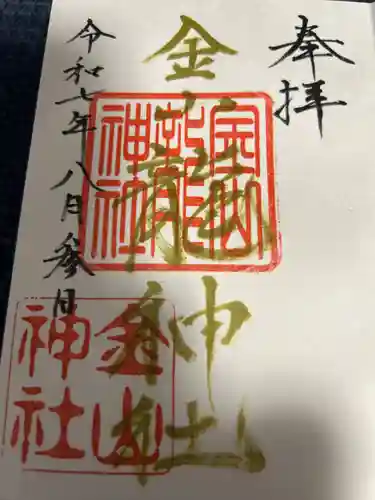 奉拝
金龍神社
金龍神社
令和七年八月参日
金山神社